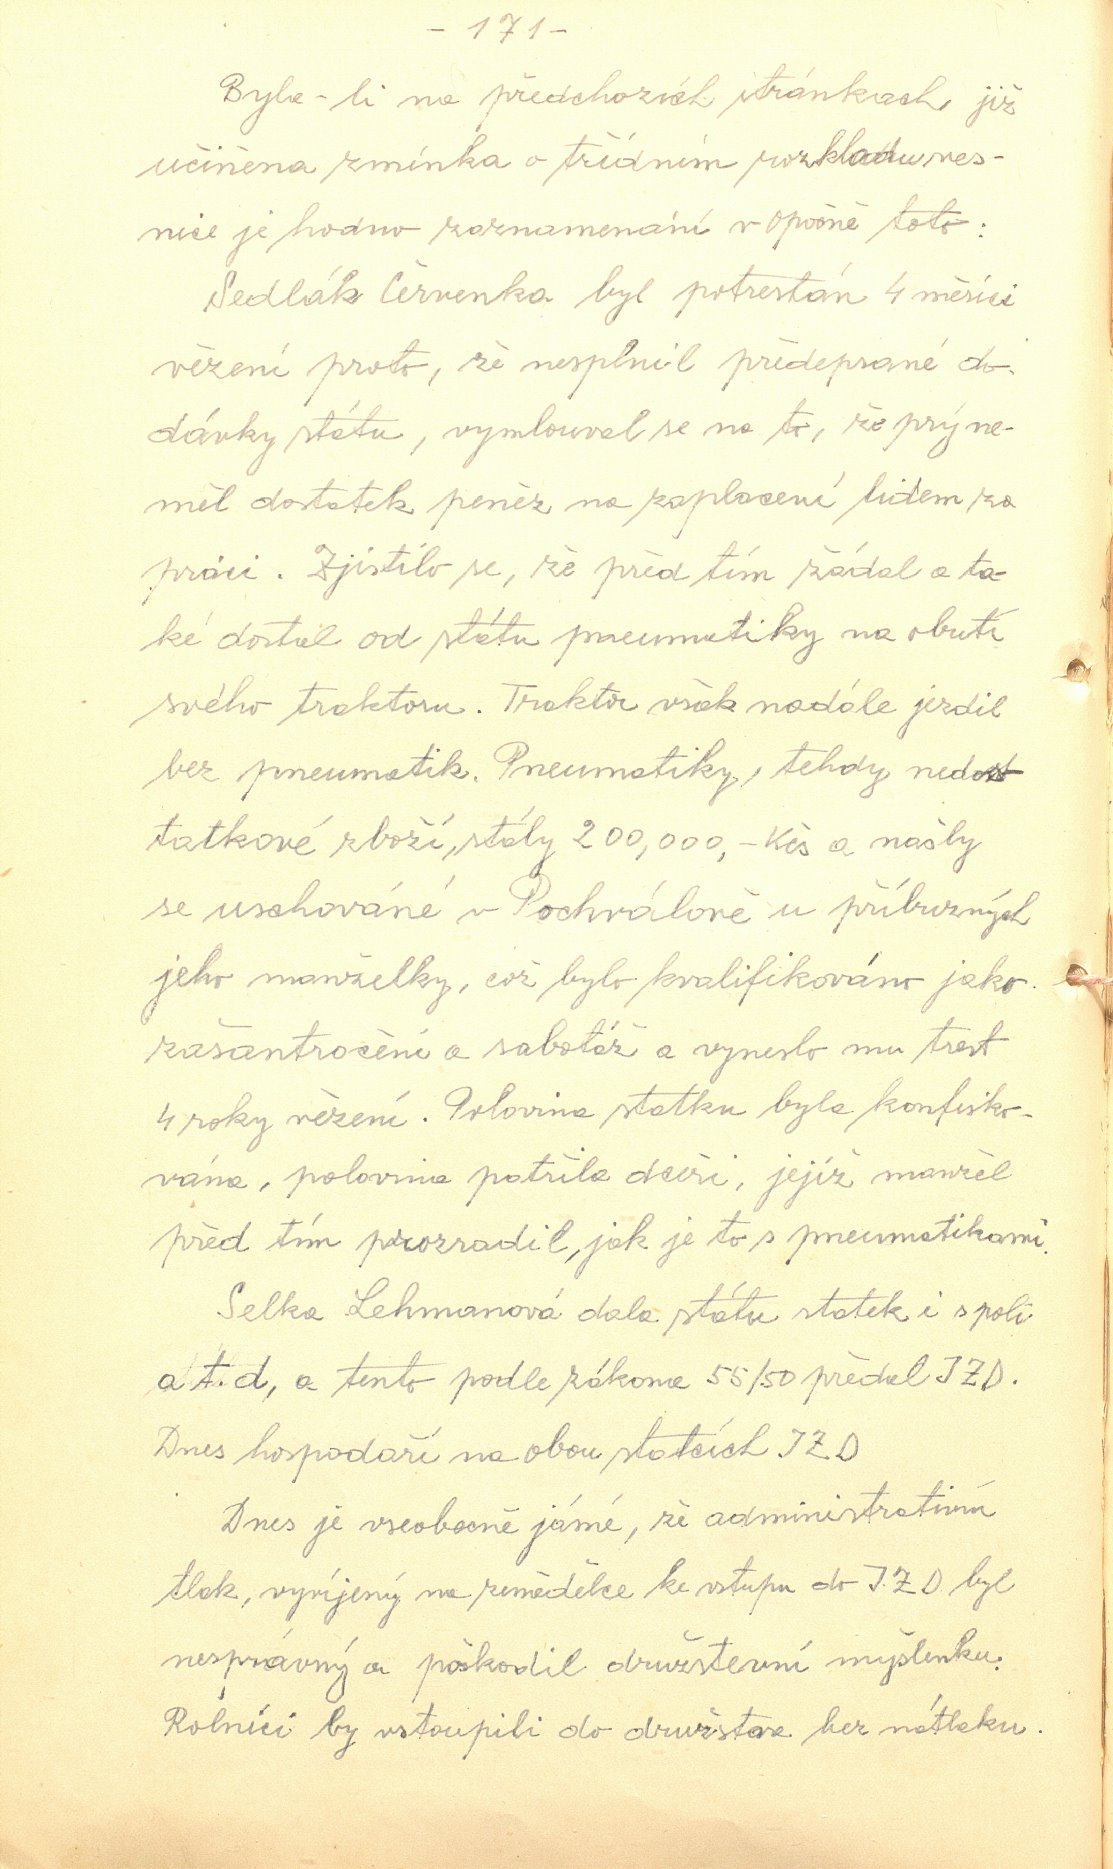 - 171 -
Byla-li na předchozích stránkách, již
učiněna zmínka o třídním rozkladu ves-
nice je hodno zaznamenání v Opočně toto:
Sedlák Červenka byl potrestán 4 měsíci
vězení proto, že nesplnil předepsané do-
dávky státu, vymlouval se na to, že prý ne-
měl dostatek peněz na zaplacení lidem za
práci. Zjistilo se, že před tím žádal a ta-
ké dostal od státu pneumatiky na obutí
svého traktoru. Traktor však nadále jezdil
bez pneumatik. Pneumatiky, tehdy nedost
tatkové zboží, stály 200,000,- Kčs a našly
se uschované v Pochválově u příbuzných
jeho manželky, což bylo kvalifikováno jako
zašantročení a sabotáž a vyneslo mu trest
4 roky vězení. Polovina statku byla konfisko-
vána, polovina patřila dceři, jejíž manžel
před tím prozradil, jak je to s pneumatikami.
Selka Lehmanová dala státu statek i s poli
a t.d, a tento podle zákona 55/50 předal JZD.
Dnes hospodaří na obou statcích JZD
Dnes je všeobecně jámé, že administrativní
tlak, vyvíjený na zemědělce ke vstupu do J.Z.D byl
nesprávný a poškodil družstevní myšlenku.
Rolníci by vstoupili do družstva bez nátlaku.